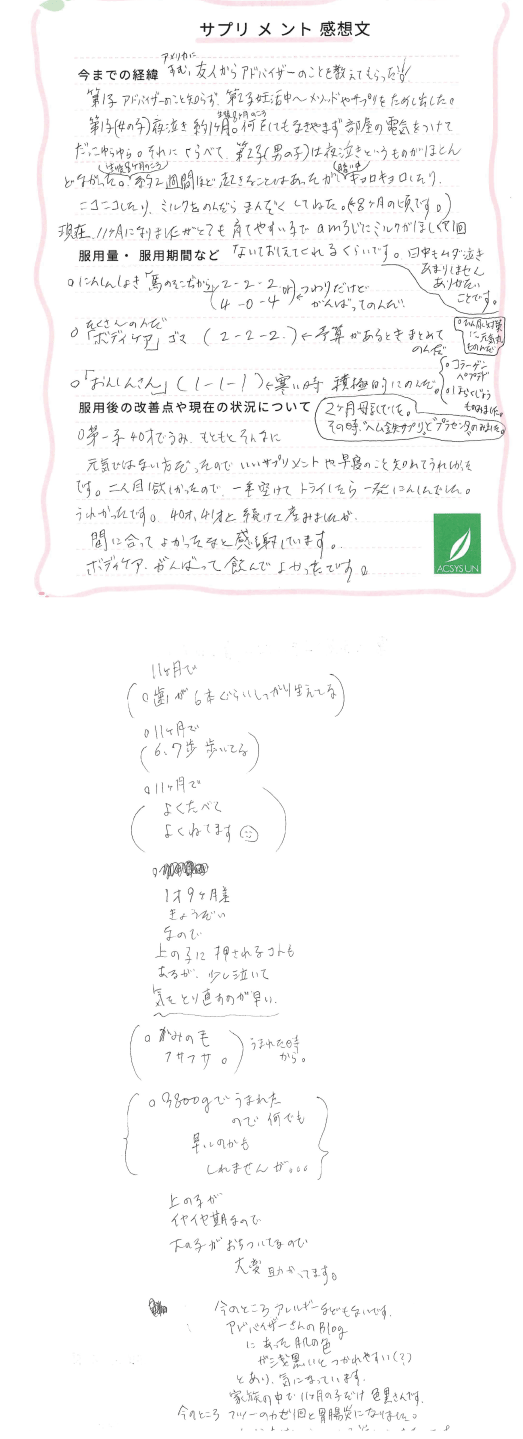 サプリメント感想文
今までの経緯 アメリカにすむ、友人からアドバイザーのことを教えてもらった!!
第1子 アドバイザーのこと知らず、第2子妊活中へメソッドやサプリをためし出した。
第1子(女の子)夜泣き 約1ヶ月。何をしてもなきやまず 部屋の電気をつけて
だっこゆらゆら。それにくらべて、第2子(男の子)は夜泣きというものがほとん
どなかった。約2週間ほど起きることはあったが キョロキョロしたり、
ニコニコしたり、ミルクをのんだら まんぞくしてねた。(←8ヶ月の頃です。)
現在、11ヶ月になりましたがとても育てやすい子で am5じにミルクがほしくて1回
服用量・服用期間など ないておしえてくれるくらいです。日中もムダ泣き
あまりしません
ありがたい
ことです。
○にんしんしょき「馬のそこぢから」(2-2-2 or 4-0-4)←つわりだけど
がんばってのんだ
○たくさんのんだ
「ボディケア」ゴマ (2-2-2)←予算があるときまとめて
のんだ
○「おんしんさん」(1-1-1)←寒い時 積極的にのんだ。
○コラーゲン
ペプチド
服用後の改善点や現在の状況について
2ヶ月母乳でした。
その時、"ヘム鉄サプリ"と"プラセンタ"のみました。
○第一子40才でうみ、もともとそんなに
元気ではない方だったので いいサプリメントや早寝のこと知れてうれしかった
です。二人目欲しかったので、一年空けてトライしたら一発にんしんでした。
うれしかったです。40才、41才と続けて産みましたが、
間に合ってよかったなと感謝しています。
ボディケア、がんばって飲んでよかったです。
ACSYSUN
11ヶ月で
○歯が6本ぐらいしっかり生えてる
○11ヶ月で
6、7歩歩いてる
○11ヶ月で
よくたべて
よくねてます
1才9ヶ月差
きょうだい
なので
上の子に押されるコトも
あるが、少し泣いて
気をとり直すのが早い。
○かみの毛
フサフサ。
うまれた時
から。
○3800gでうまれた
ので何でも
早いのかも
しれませんが。。。
上の子が
イヤイヤ期なので
下の子がおちついてるので
大変助かってます。
今のところアレルギーなどもないです。
アドバイザーさんのBlog
にあった肌の色
が浅黒いとつかれやすい(?)
とあり、気になっています。
家族の中で11ヶ月の子だけ色黒さんです。
今のところフツーのカゼ1回と胃腸炎になりました。